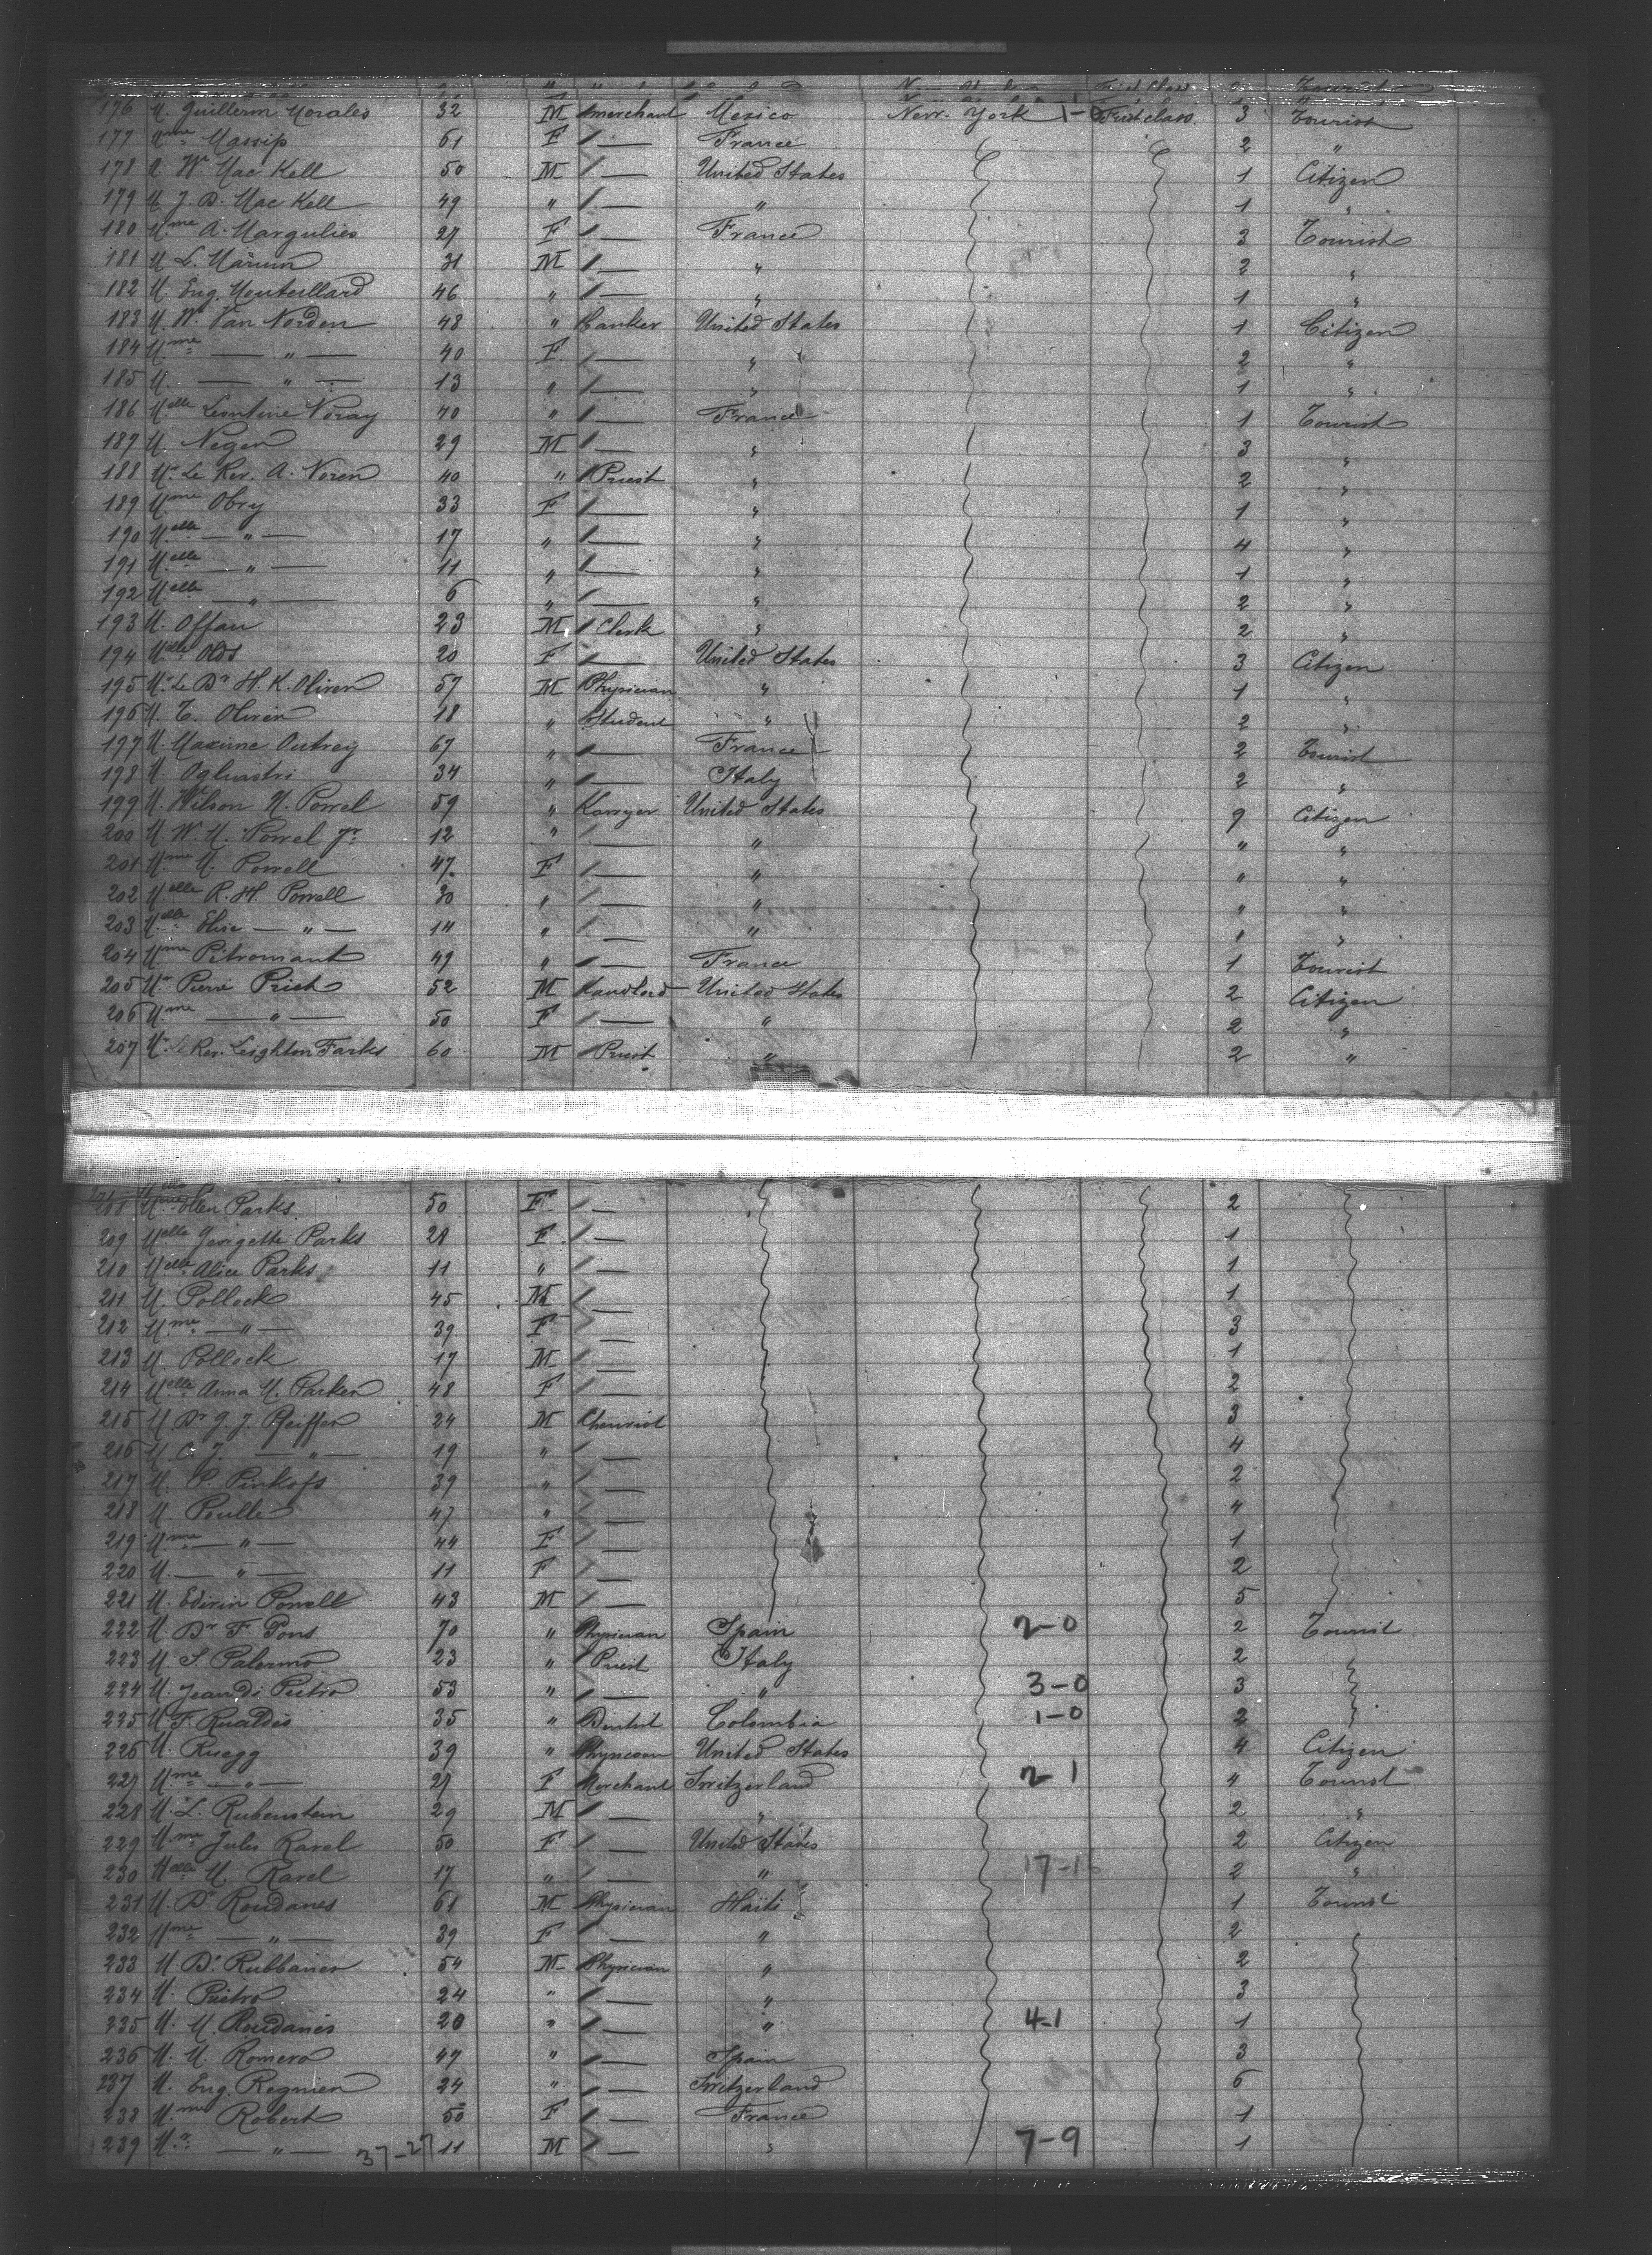 176 M. Guillerm Morales 32 M merchant Mexico New-York 1-0 First class. 3 Tourist
177 Mme Massip 61 F / — France 2 "
178 M W. Mac Kell 50 M / — United States 1 Citizen
179 M J. D. Mac Kell 49 " / — " 1 "
180 Mme A. Margulies 27 F / — France 3 Tourist
181 M L. Marum 31 M / — " 2 "
182 M. Eug. Monteillard 46 " / — " 1 "
183 M. W. Van Norden 48 " Banker United States 1 Citizen
184 Mme — " — 40 F / — " 2 "
185 M. — " — 13 " / — " 1 "
186 Melle Leontine Noray 40 " / — France 1 Tourist
187 M. Neger 29 M / — " 3 "
188 Mr. Le Rev. A. Noren 40 " Priest " 2 "
189 Mme Obry 33 F / — " 1 "
190 Melle — " — 17 " / — " 4 "
191 Melle — " — 11 " / — " 1 "
192 Melle — " — 6 " / — " 2 "
193 M. Offau 23 M / Clerk " 2 "
194 Melle Olds 20 F / — United States 3 Citizen
195 Mr. Le Dr H. K. Oliver 57 M Physician " 1 "
196 M. T. Oliver 18 " Student " 2 "
197 M. Maxime Outrey 67 " / — France 2 Tourist
198 M. Ogliastri 34 " / — Italy 2 "
199 M. Wilson M. Powel 59 " Lawyer United States 9 Citizen
200 M. W. M. Powel Jr. 12 " / — " " "
201 Mme M. Powell 47. F / — " " "
202 Melle R. H. Powell 30 " / — " " "
203 Melle Elise — " — 14 " / — " " "
204 Mme Pitromant 49 " / — France 1 Tourist
205 Mr Pierre Priet 52 M Landlord United States 2 Citizen
206 Mme — " — 50 F / — " 2 "
207 Mr. Le Rev. Leighton Parks 60 M Priest " 2 "
208 Mme Ellen Parks 50 F / — 2
209 Melle Georgette Parks 28 F / — 1
210 Melle Alice Parks 11 " / — 1
211 M. Pollock 45 M / — 1
212 Mme — " — 39 F / — 3
213 M Pollock 17 M / — 1
214 Melle Anna M. Parker 48 F / — 2
215 M Dr J. J. Pfeiffer 24 M Chemist 3
216 M C. J. — " — 19 " / — 4
217 M. P. Pinkofs 39 " / — 2
218 M Poulle 47 " / — 4
219 Mme — " — 44 F / — 1
220 M. — " — 11 F / — 2
221 M. Edwin Powell 43 M / — 5
222 M. Dr F. Pons 70 " Physician Spain 2-0 2 Tourist
223 M S. Palermo 23 " Priest Italy 2
224 M. Jean Di Pietro 53 " / — " 3-0 3
225 M F. Rualdès 35 " Dentist Colombia 1-0 2
226 M. Ruegg 39 " Physician United States 4 Citizen
227 Mme — " — 27 F Merchant Switzerland 2-1 4 Tourist
228 M. L. Rubenstein 29 M / — " 2 "
229 Mme Jules Ravel 50 F / — United States 2 Citizen
230 Melle M. Ravel 17 " / — " 17-16 2 "
231 M. Dr Roudanes 61 M Physician Haïti 1 Tourist
232 Mme — " — 39 F / — " 2
233 M Dr. Rubbaner 54 M Physician " 2
234 M. Prietro 24 " / — " 3
235 M. M. Roudanes 20 " / — " 4-1 1
236 M. M. Romero 47 " / — Spain 3
237 M. Eug. Regnier 24 " / — Switzerland 6
238 Mme Robert 50 F / — France 1
239 Mr. — " — 37-27 11 M / — " 7-9 1